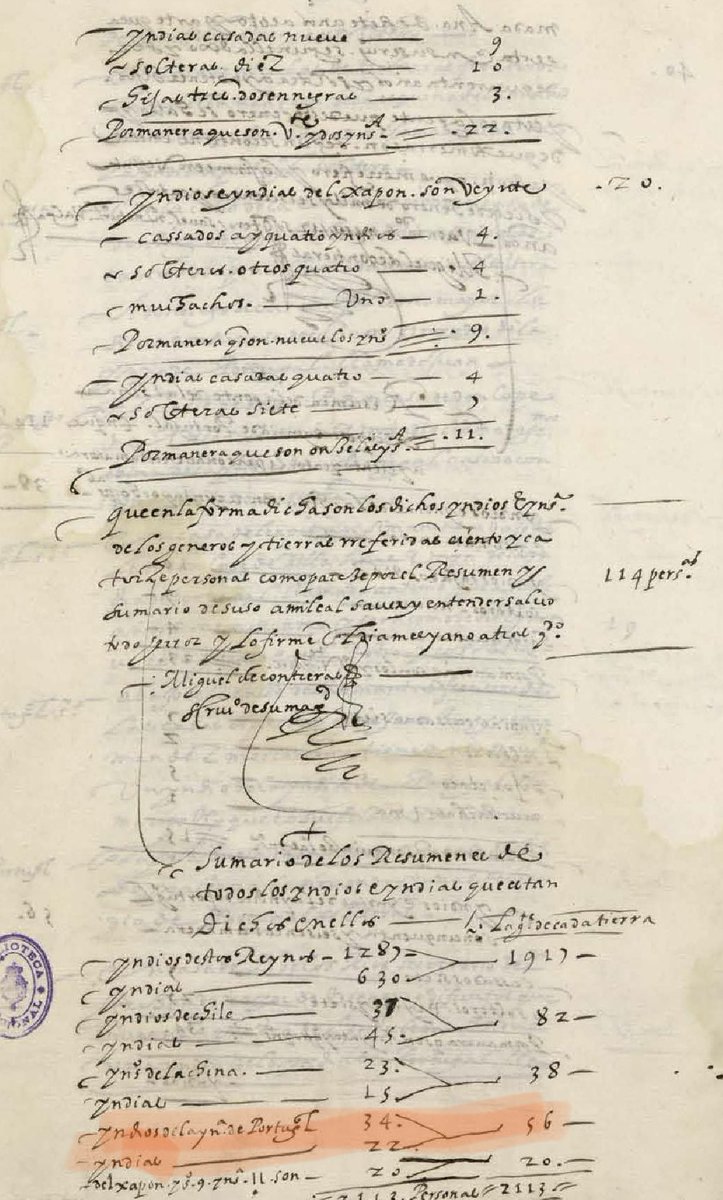 yndias casadas nueve 9
solteras diez 10
hijas tres. dos en negras 3.
Por manera que son. v.te y dos yns.A 22.
yndios e yndias del xapon. son veynte .20.
cassados ay quatro yndios 4.
solteros. otros quatro 4
muchachos. Uno 1.
Por manera q son. nueve los yns 9.
yndias casadas quatro 4
solteras siete 7
Por manera que son onze las ys.A 11.
que en la forma dicha son los dichos yndios e yns.
de los generos y tierras rreferidas ciento y ca
torze personas como pareze por el Resumen y 114 pers.as
sumario de suso a mi leal saver y entender salvo
todo error y lo firme
Miguel de contreras
scrivo de su magd
Sumario de los Resumenes de
todos los yndios e yndias que estan
Dichos en ellos La gte de cada tierra
yndios destos Reynos 1287 1917
yndias 630
yndios de chile 37 82
yndias 45.
yns de la china. 23. 38
yndias 15.
yndios de la yna. de Portugl 34. 56
yndias 22
del xapon. yos. 9. yns. 11. son 20 20.
2113 Personas 2113
BIBLIOTECA